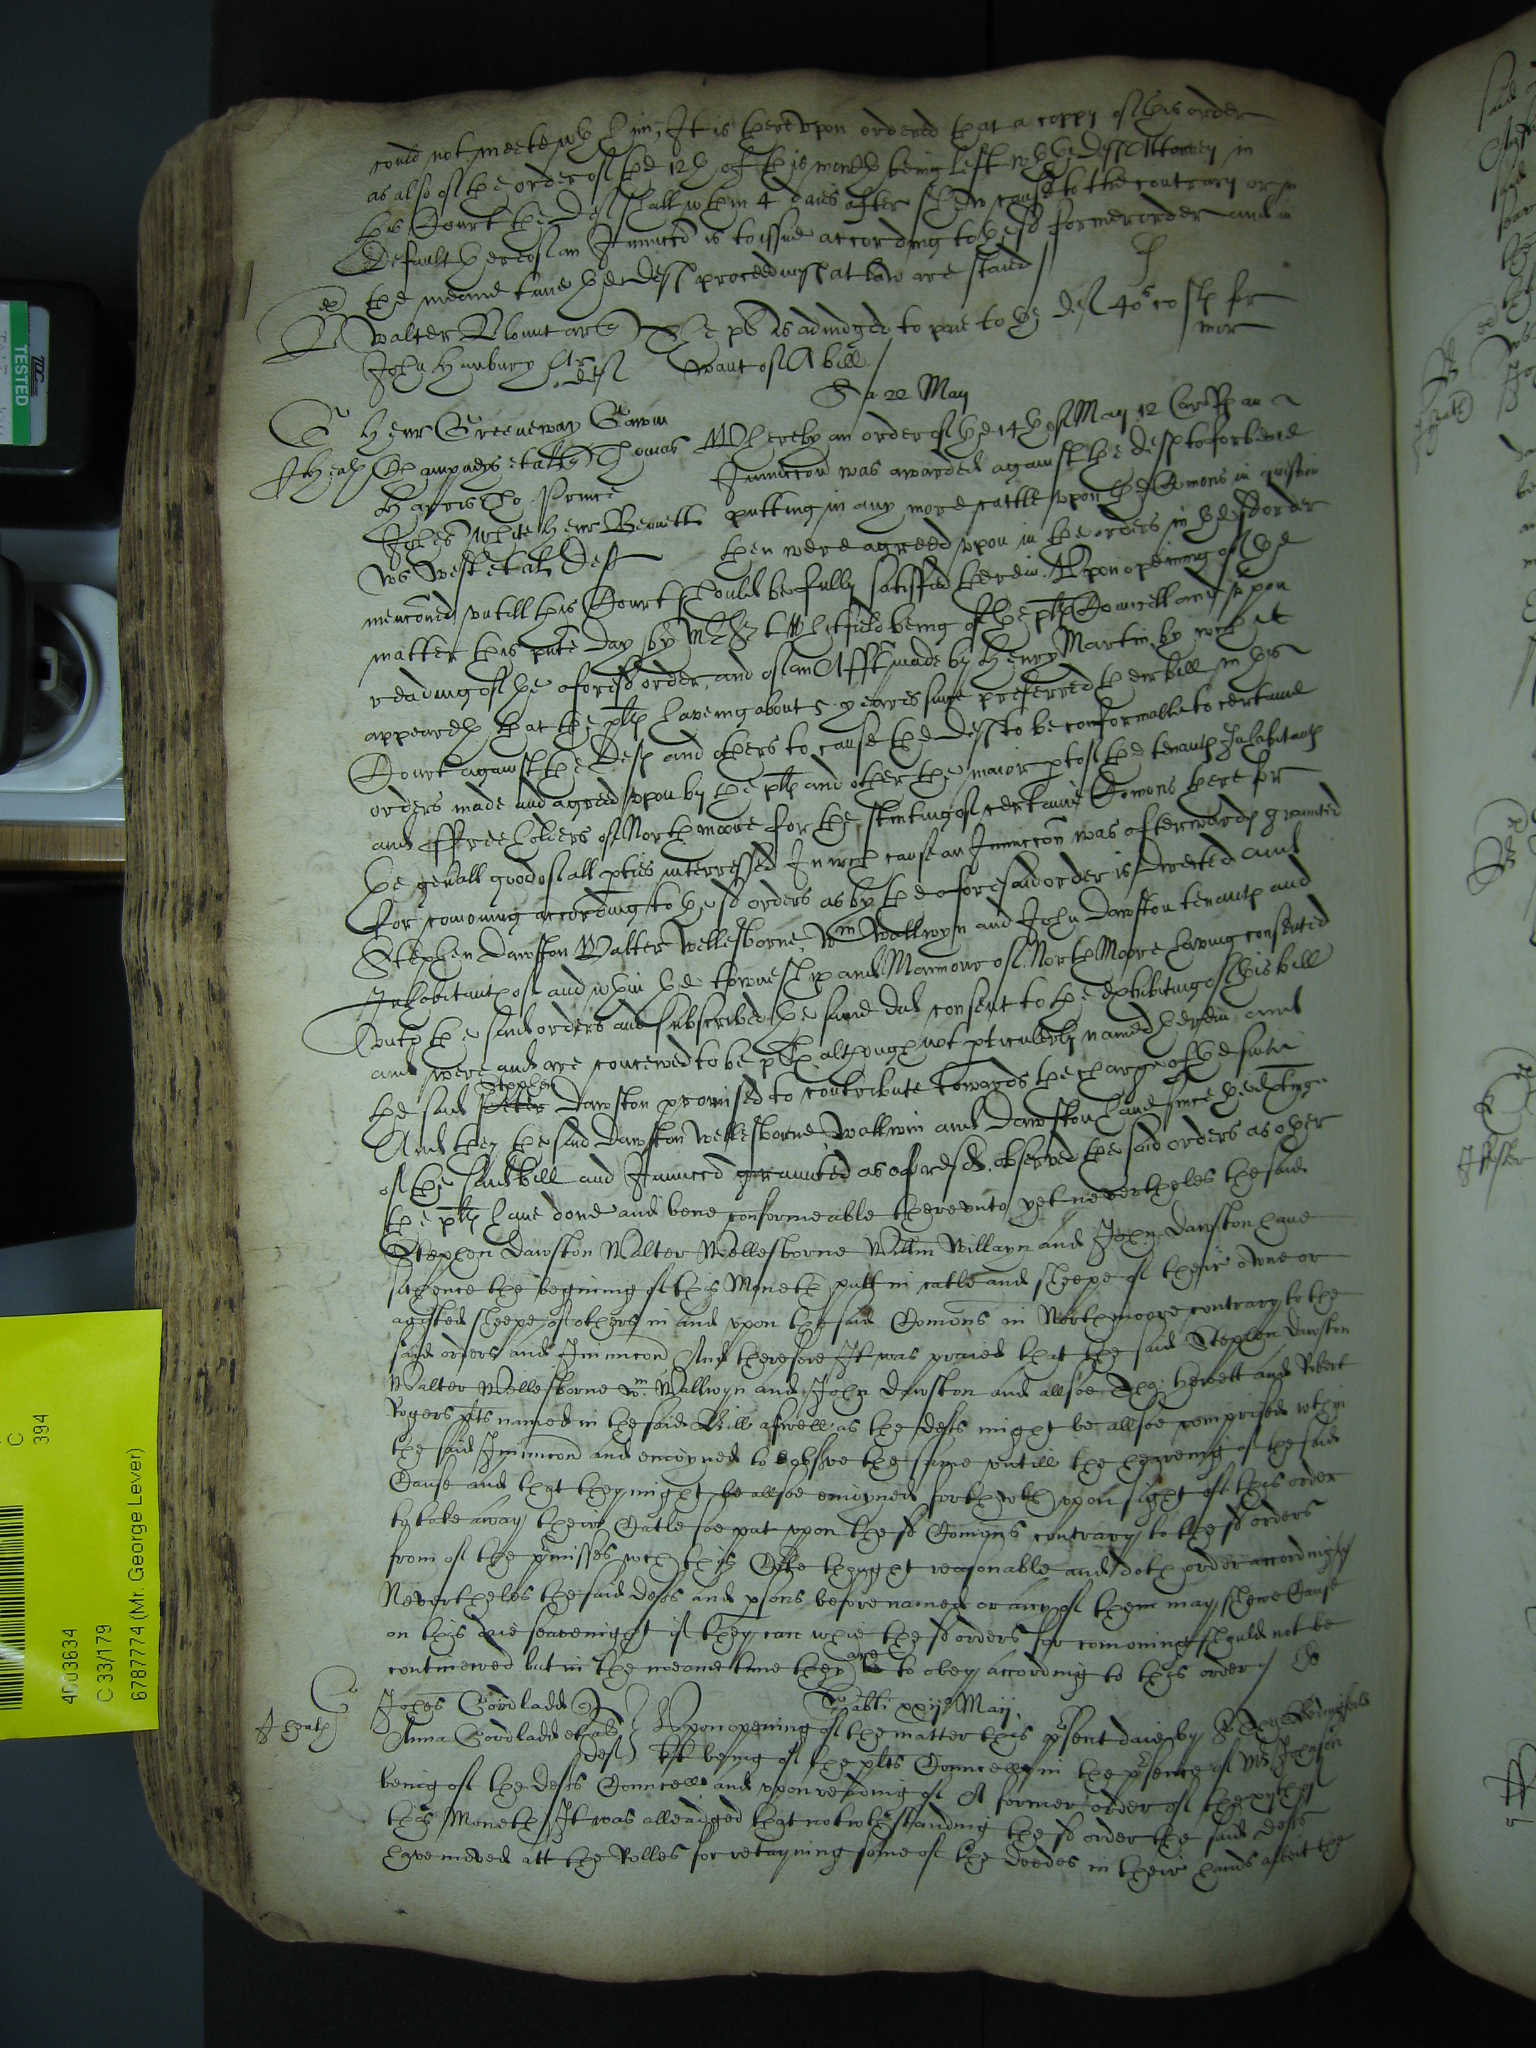 could not meete wth him, It is thereupon ordered that a coppy of this order
as also of the order of the 12th of this moneth being left wth the Deftes Attorney in
this Court the Def shall wthin 4 daies after shew cause to the contrary or in
Default thereof an Iniuncc̃on is to issue according to the sd former order and in
the meane tyme the Deftes proceedings at law are staied
Walter Blount ar quer The plt is adiudged to paie to the def 40s costs for
John Hanbury Ar def want of A bill
Sa 22 May
Henr Greeneway Gawin
Champneys et al quer Thomas Whereby an order of the 14th of May 12 Car Rs an
Harris Tho Prince Iniunccon was awarded against the deftes to forbeare
Johes White Henr Bennett putting in any more cattle upon the Comons in question
Ws West et al Deftes then were agreed upon in the orders in the sd order
menc̃oned untill this Court should be fully satisfied therein. Upon opening of the
matter this pnte day by Mr Whitfield being of the plts Councell and upon
reading of the aforesd order, and of an Afft made by Henry Martin by wch it
appeareth that the plts haveing about 5 yeares since preferred their bill in this
Court against the Deftes and others to cause the Deftes to be conformable to certaine
orders made and agreed upon by the plts and other the maior pte of the tenants Inhabitants
and ffreeholders of Northmoore for the stinting of certaine Comons there for
the gen̄all good of all pties interressed In wch cause an Iniuncc̃on was afterwards graunted
for comoning according to the sd orders as by the aforesaid order is directed and
Stephen Dawston Walter Wellesborne, Wm Wallwyn and John Dawston tenants and
Inhabitants of and wthin the towneshipp and Mannour of North Moore having consented
unto the said orders and subscribed the same did consent to the exhibiting of this bill
and were and are conceived to be plts although not pticulerly named therein and
the said Stephen Dawston promised to contribute towards the charge of the suite
And they the said Dawston Wellesborne Wallwin and Dawston have since the exhting
of the said bill and Iniuncc̃on graunted as aforesd, observed the said orders as other
the plts have done and bene conformeable thereunto yet neverthelės the said
Stephen Dawston Walter Wellesborne Willm Willayn and John Dawston have
sithence the begining of this Moneth putt in catle and sheepe of their owne or
agisted sheepe of others in and upon the said Comons in Northmoore contrary to the
said orders and Iniuncc̃on And therefore It was praied that the said Stephen Dawston
Walter Wellesborne Wm Wallwyn and John Dawston and allsoe Hewett and Robert
Rogers plts named in the said Bill aswell as the defts might be allsoe comprised wthin
the said Iniuncc̃on and enioyned to obserue the same untill the heareing of the said
Cause and that they might be allsoe enioyned forthwth upon sight of this order
to take away their Catle soe put upon the sd Comons contrary to the sd orders
from of the p̃misses wch this Cte thought reasonable and doth order accordingly
Nevertheles the said defts and psons before named or any of them may shewe Cause
on this daie seavenight if they can whie the sd orders for comoning should not be
continewed but in the meane time they are to obey according to this order
Johes Cordladd quer Sabti xxijo Maij
Anna Cordladd et al Upon opening of the matter this p̃sent daie by
def being of the plts Councell in the p̃sence of Mr Johnson
being of the defts Councell and upon reading of A former order of the xyth of
this Moneth It was alleadged that notwthstanding the sd order the said defts
have moved att the Rolles for retayning some of the deedes in their hands albeit the
TESTED
C
394
4003634
C 33/179
6787774 (Mr. George Lever)